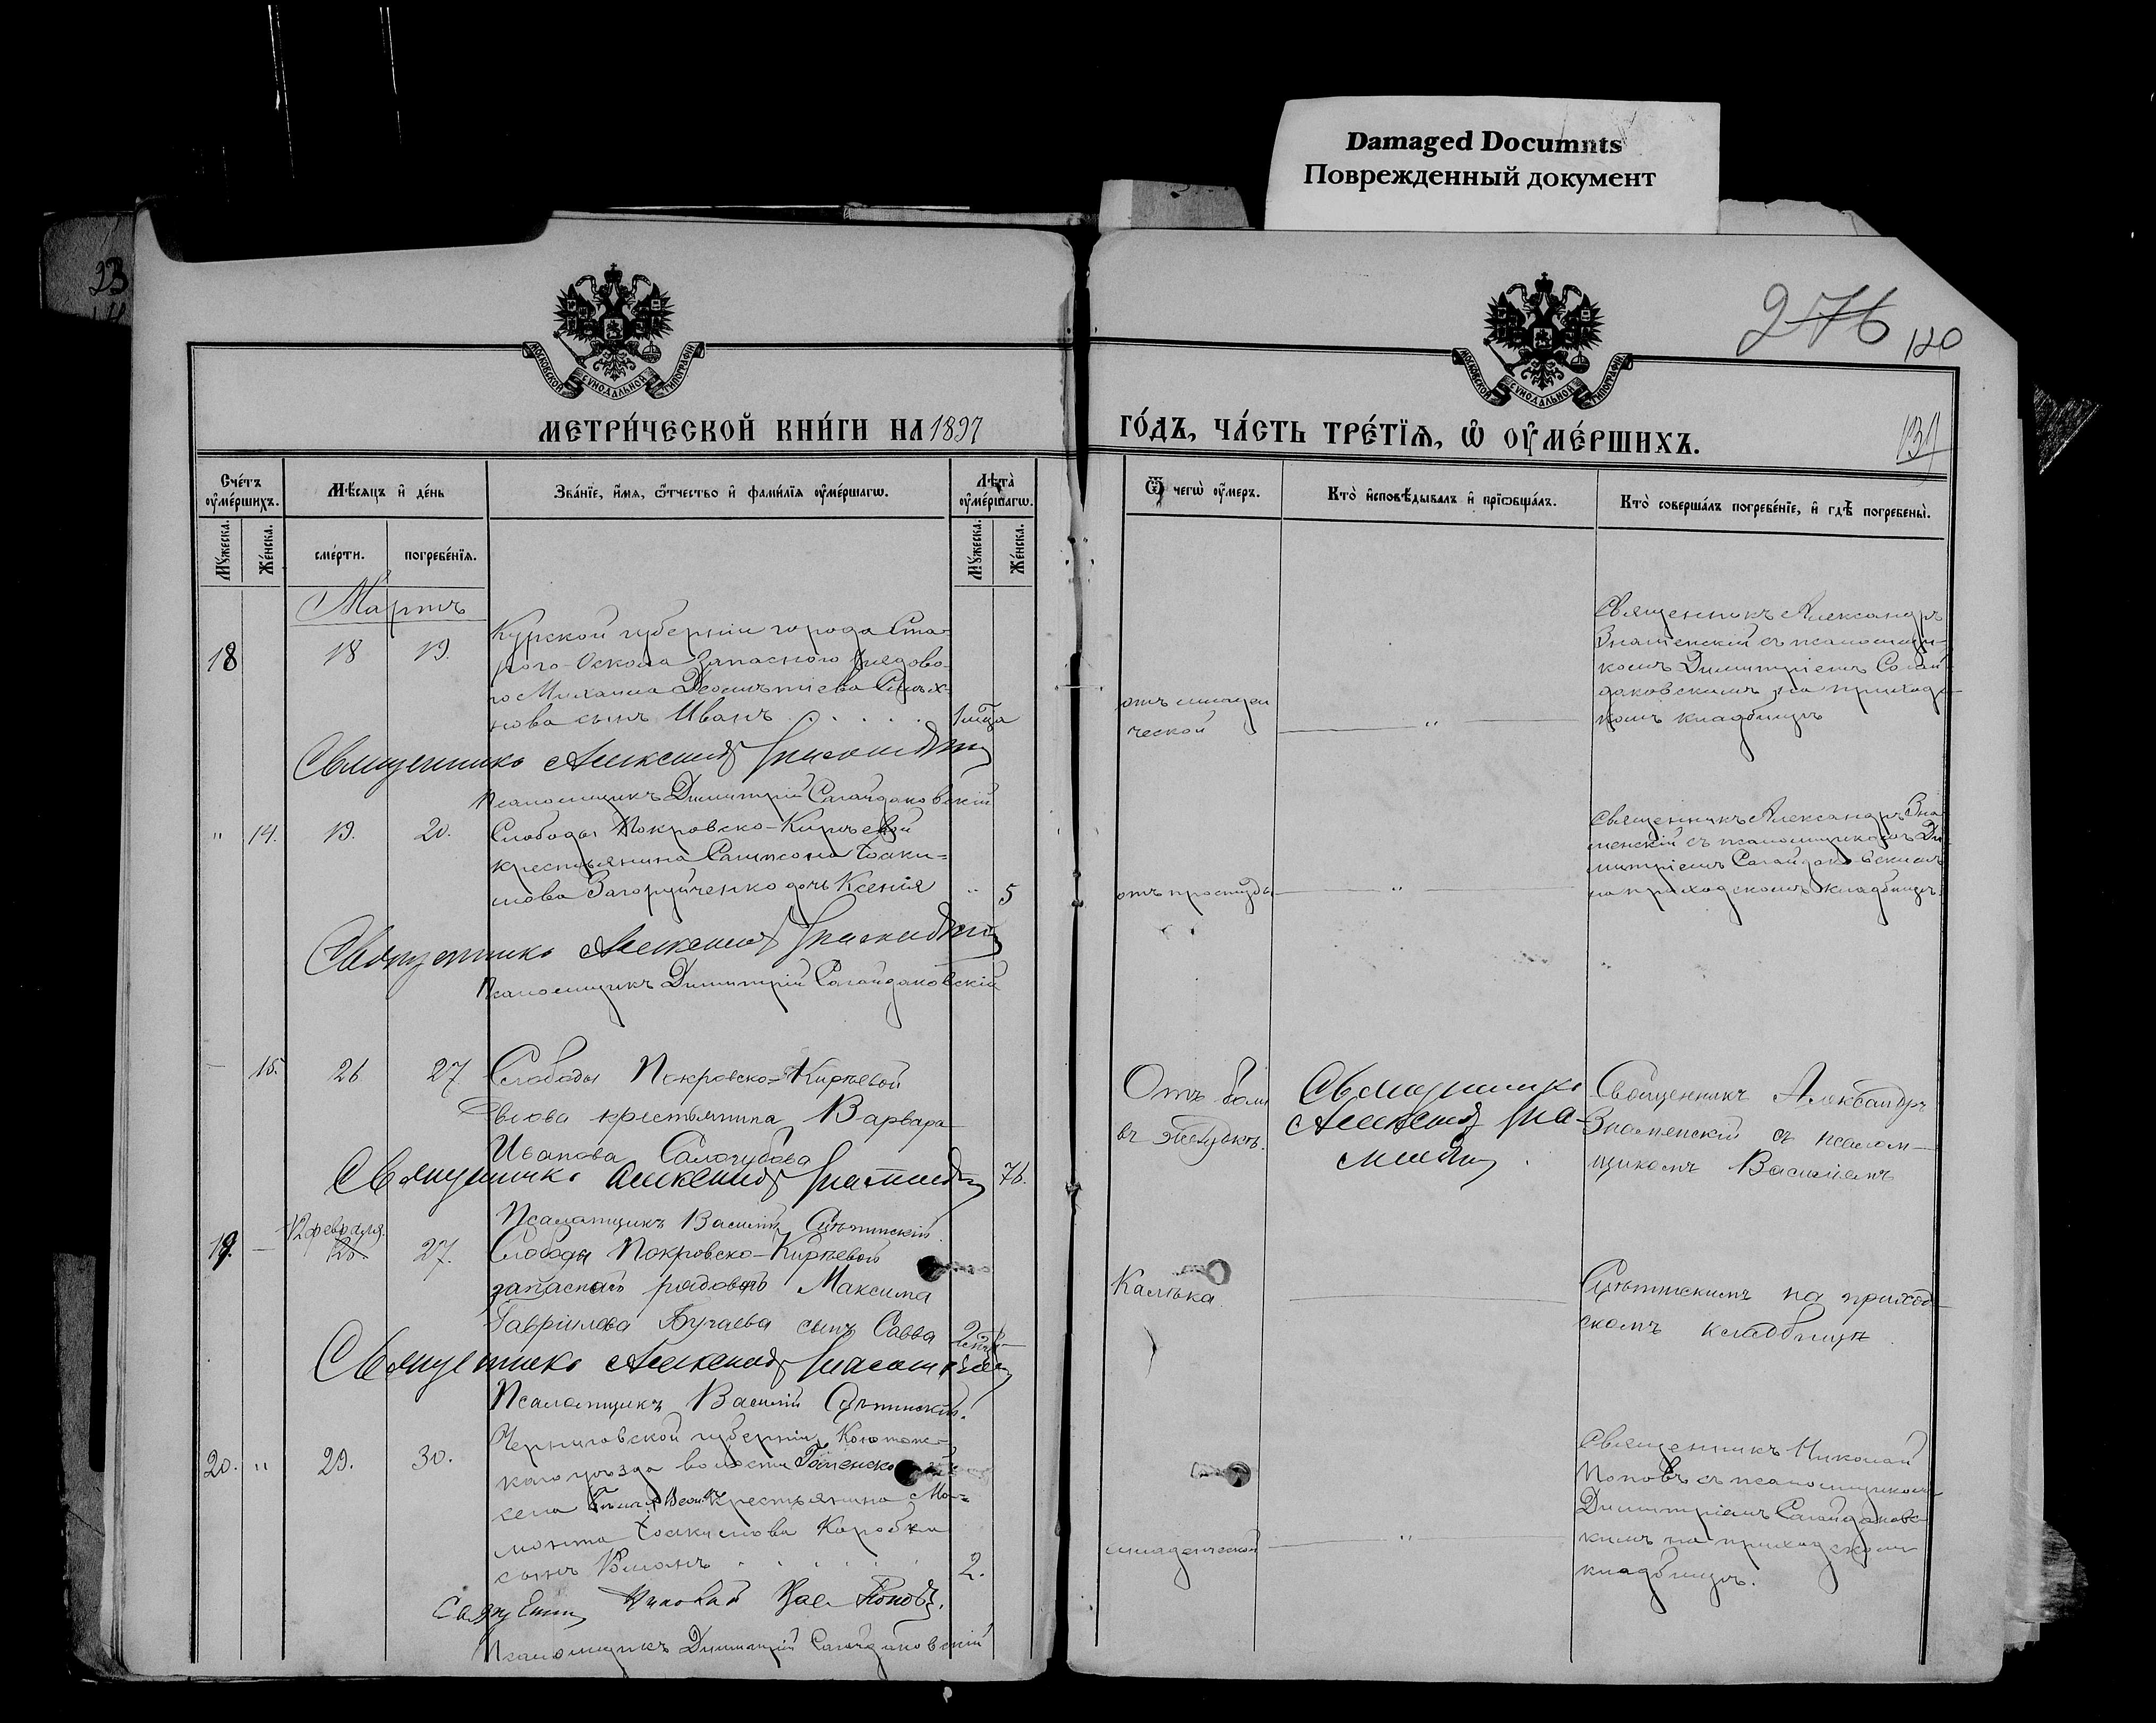 Damaged Documnts
Поврежденный документ
23
276
120
МОСКОВСКОЙ СѴНОДАЛЬНОЙ ТИПОГРАФІИ
МОСКОВСКОЙ СѴНОДАЛЬНОЙ ТИПОГРАФІИ
МЕТРИ́ЧЕСКОЙ КНИ́ГИ НА 1897
ГО́ДЪ, ЧА́СТЬ ТРЕ́ТІЯ, Ѽ ОУМЕ́РШИХЪ.
131
Сче́тъ оуме́ршихъ.
Мѣ́сяцъ и де́нь
Зва́нїе, и́мя, ѻ́тчество и фами́лїя оуме́ршагѡ.
Лѣта̀ оуме́ршагѡ.
Ѿ чегѡ̀ оу́меръ.
Кто̀ исповѣ́дывалъ и прїѡбща́лъ.
Кто̀ соверша́лъ погребе́нїе, и гдѣ̀ погребены̀.
Мꙋ́жеска.
Же́нска.
сме́рти.
погребе́нїя.
Мꙋ́жеска.
Же́нска.
Мартъ
18
18
19.
Курской губерніи города Ста-
раго-Оскола запаснаго рядово-
го Михаила
нова сынъ Иванъ . . . . .
1 года
отъ младен
ческой
"
Священникъ Александръ
Знаменскій съ псаломщи-
комъ Димитріемъ Сагай-
даковскимъ на приход-
комъ кладбищѣ
Священникъ Александръ Знаменскій
Псаломщикъ Димитрій Сагайдаковскій
"
14.
19.
20.
Слободы Покровско-Кирѣевой
крестьянина Сампсона Іоаки-
мова Загоруйченко дочь Ксенія
"
5
отъ простуды
"
Священникъ Александръ Зна
менскій съ псаломщикомъ Ди
митріемъ Сагайдаковскимъ
на приходскомъ кладбищѣ.
Священникъ Александръ Знаменскій
Псаломщикъ Димитрій Сагайдаковскій
15.
26
27
Слободы Покровско-Кирѣевой
вдова крестьянина Варвара
Иванова Салогубова
76.
Отъ боли
въ желудкѣ.
Священникъ
Александръ Зна-
менскій
Священникъ Александръ
Знаменскій съ псалом-
щикомъ Василіемъ
Священникъ Александръ Знаменскій
Псаломщикъ Василій Срѣтинскій.
19.
12 февраля.
26
27.
Слободы Покровско-Кирѣевой
запаснаго рядового Максима
Гавріилова Бугаева сынъ Савва
2
Калѣка
Срѣтинскимъ на приход-
скомъ кладбищѣ.
Священникъ Александръ Знаменскій
Псаломщикъ Василій Срѣтинскій.
20.
"
29.
30.
Черниговской губерніи, Конотопс-
каго уѣзда волости
села крестьянина Ма-
Іоакимова Коробка
сынъ Романъ . . . . . .
2.
младенческой
"
Священникъ Николай
Поповъ съ псаломщикомъ
Димитріемъ Сагайдаковс-
кимъ на приходскомъ
кладбищѣ.
Священ Николай Поповъ.
Псаломщикъ Димитрій Сагайдаковскій